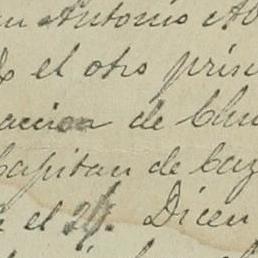 n Antonio Al
el otro prin
acion de Chu
Capitan de Caz
el 24. Dicen